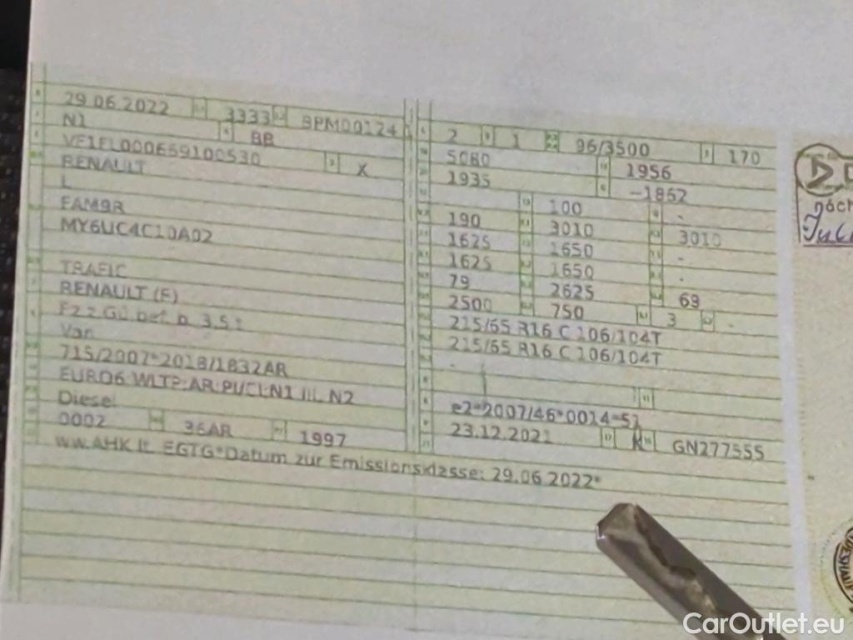 29.06.2022 3333 BPM00124
N1 BB
VF1FL000659100530 X
RENAULT
L
FAM9R
MY6UC4C10A02
TRAFIC
RENAULT (F)
Fz.z.Gü.bef.b. 3,5 t
Van
715/2007*2018/1832AR
EURO6 WLTP;AR;PI/CI;N1 III, N2
Diesel
0002 36AR 1997
ww.AHK lt. EGTG*Datum zur Emissionsklasse: 29.06.2022*
2 1 96/3500 170
5080 1956
1935 -1862
100 -
190 3010 3010
1625 1650 -
1625 1650 -
79 2625 69
2500 750 3 -
215/65 R16 C 106/104T
215/65 R16 C 106/104T
e2*2007/46*0014*51
23.12.2021 K GN277555
CarOutlet.eu